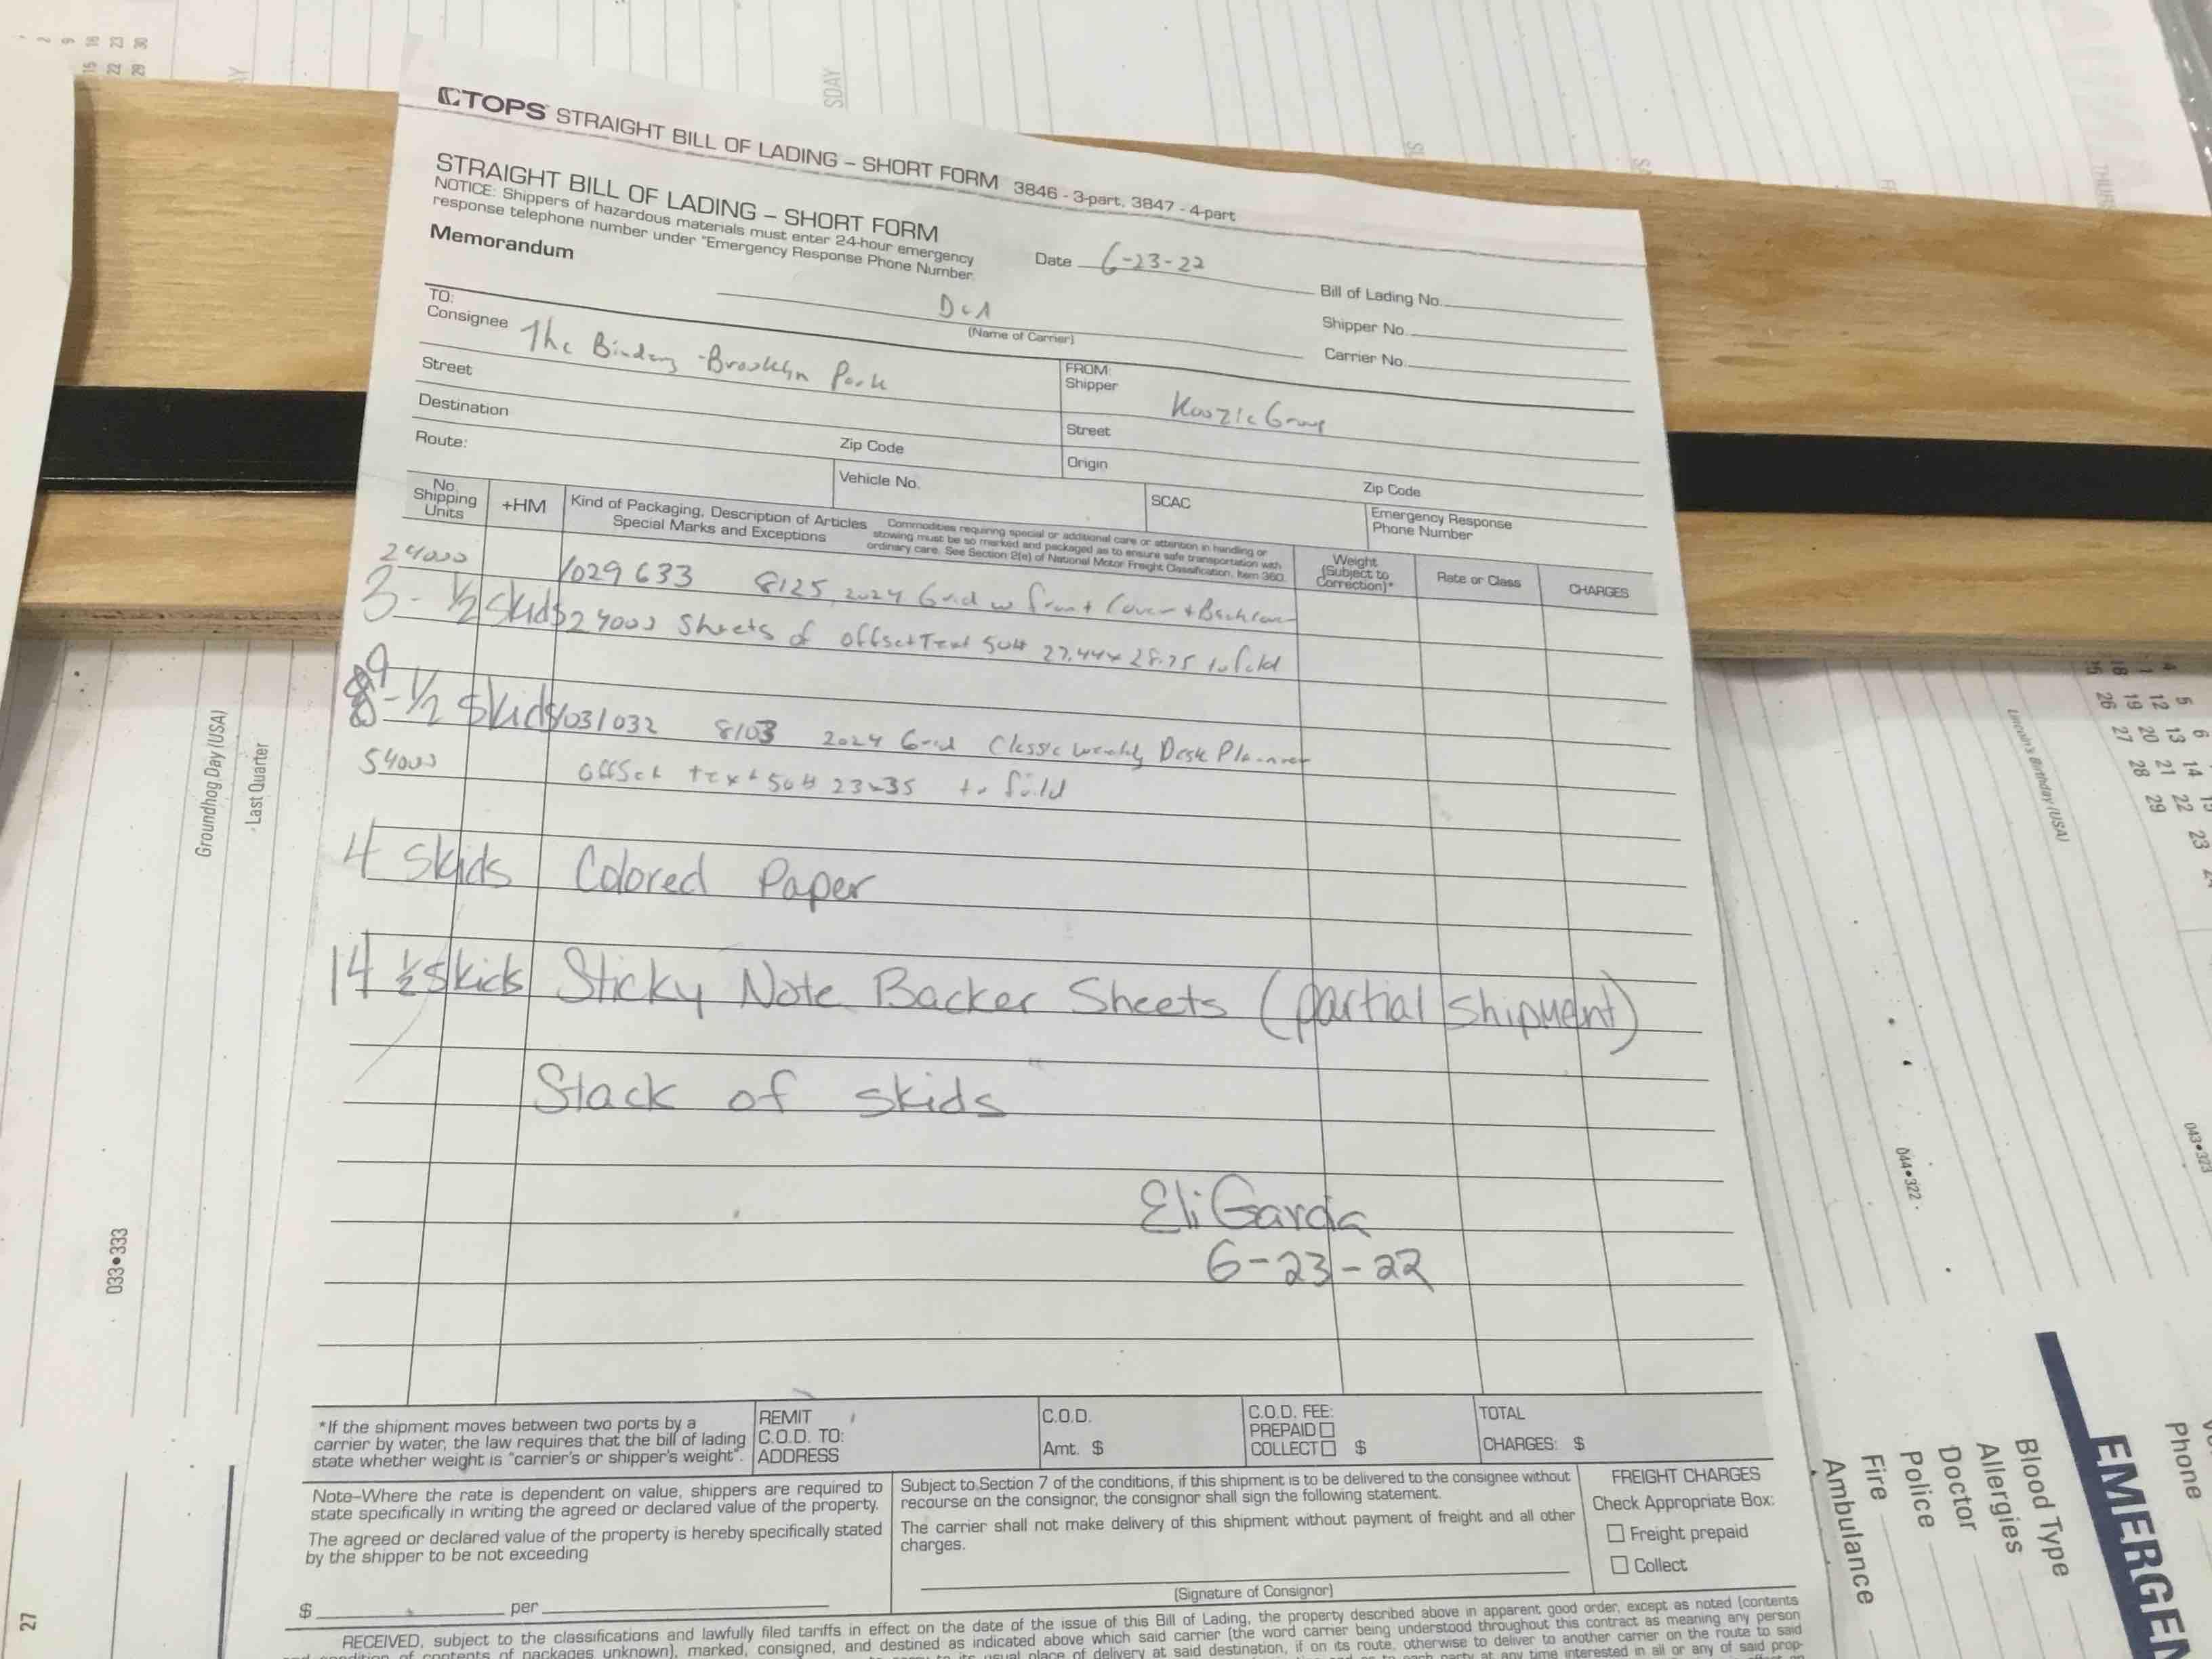 TOPS STRAIGHT BILL OF LADING – SHORT FORM 3846 - 3-part, 3847 - 4-part
STRAIGHT BILL OF LADING – SHORT FORM
NOTICE: Shippers of hazardous materials must enter 24-hour emergency
response telephone number under "Emergency Response Phone Number.
Memorandum
Date 6-23-22
Bill of Lading No.
Shipper No.
Carrier No.
(Name of Carrier)
TO:
Consignee The Bindery - Brooklyn Park
FROM:
Shipper Koozie Group
Street
Street
Destination
Zip Code
Origin
Zip Code
Route:
Vehicle No.
SCAC
Emergency Response
Phone Number
No.
Shipping
Units
+HM
Kind of Packaging, Description of Articles
Special Marks and Exceptions
Commodities requiring special or additional care or attention in handling or
stowing must be so marked and packaged as to ensure safe transportation with
ordinary care. See Section 2(e) of National Motor Freight Classification, Item 360.
Weight
(Subject to
Correction)*
Rate or Class
CHARGES
24000 1029633 8125 2024 Grid w front Cover + Backcover
3 - 1/2 Skids 24000 Sheets of offset Text 50# 27.44x 28.75 to fold
9 - 1/2 Skids 1031032 8103 2024 Grid Classic weekly Desk Planner
54000 offset text 50# 23x35 to fold
4 Skids Colored Paper
14 1/2 Skids Sticky Note Backer Sheets (partial shipment)
Stack of skids
Eli Garcia
6-23-22
*If the shipment moves between two ports by a
carrier by water, the law requires that the bill of lading
state whether weight is "carrier's or shipper's weight".
REMIT
C.O.D. TO:
ADDRESS
C.O.D.
Amt. $
C.O.D. FEE:
PREPAID
COLLECT $
TOTAL
CHARGES: $
Note–Where the rate is dependent on value, shippers are required to
state specifically in writing the agreed or declared value of the property.
The agreed or declared value of the property is hereby specifically stated
by the shipper to be not exceeding
$ per
Subject to Section 7 of the conditions, if this shipment is to be delivered to the consignee without
recourse on the consignor, the consignor shall sign the following statement.
The carrier shall not make delivery of this shipment without payment of freight and all other
charges.
(Signature of Consignor)
FREIGHT CHARGES
Check Appropriate Box:
Freight prepaid
Collect
RECEIVED, subject to the classifications and lawfully filed tariffs in effect on the date of the issue of this Bill of Lading, the property described above in apparent good order, except as noted (contents
condition of contents of packages unknown), marked, consigned, and destined as indicated above which said carrier (the word carrier being understood throughout this contract as meaning any person
Groundhog Day (USA)
Last Quarter
033•333
27
Lincoln's Birthday (USA)
044•322
043•323
EMERGEN
Phone
Blood Type
Allergies
Doctor
Police
Fire
Ambulance